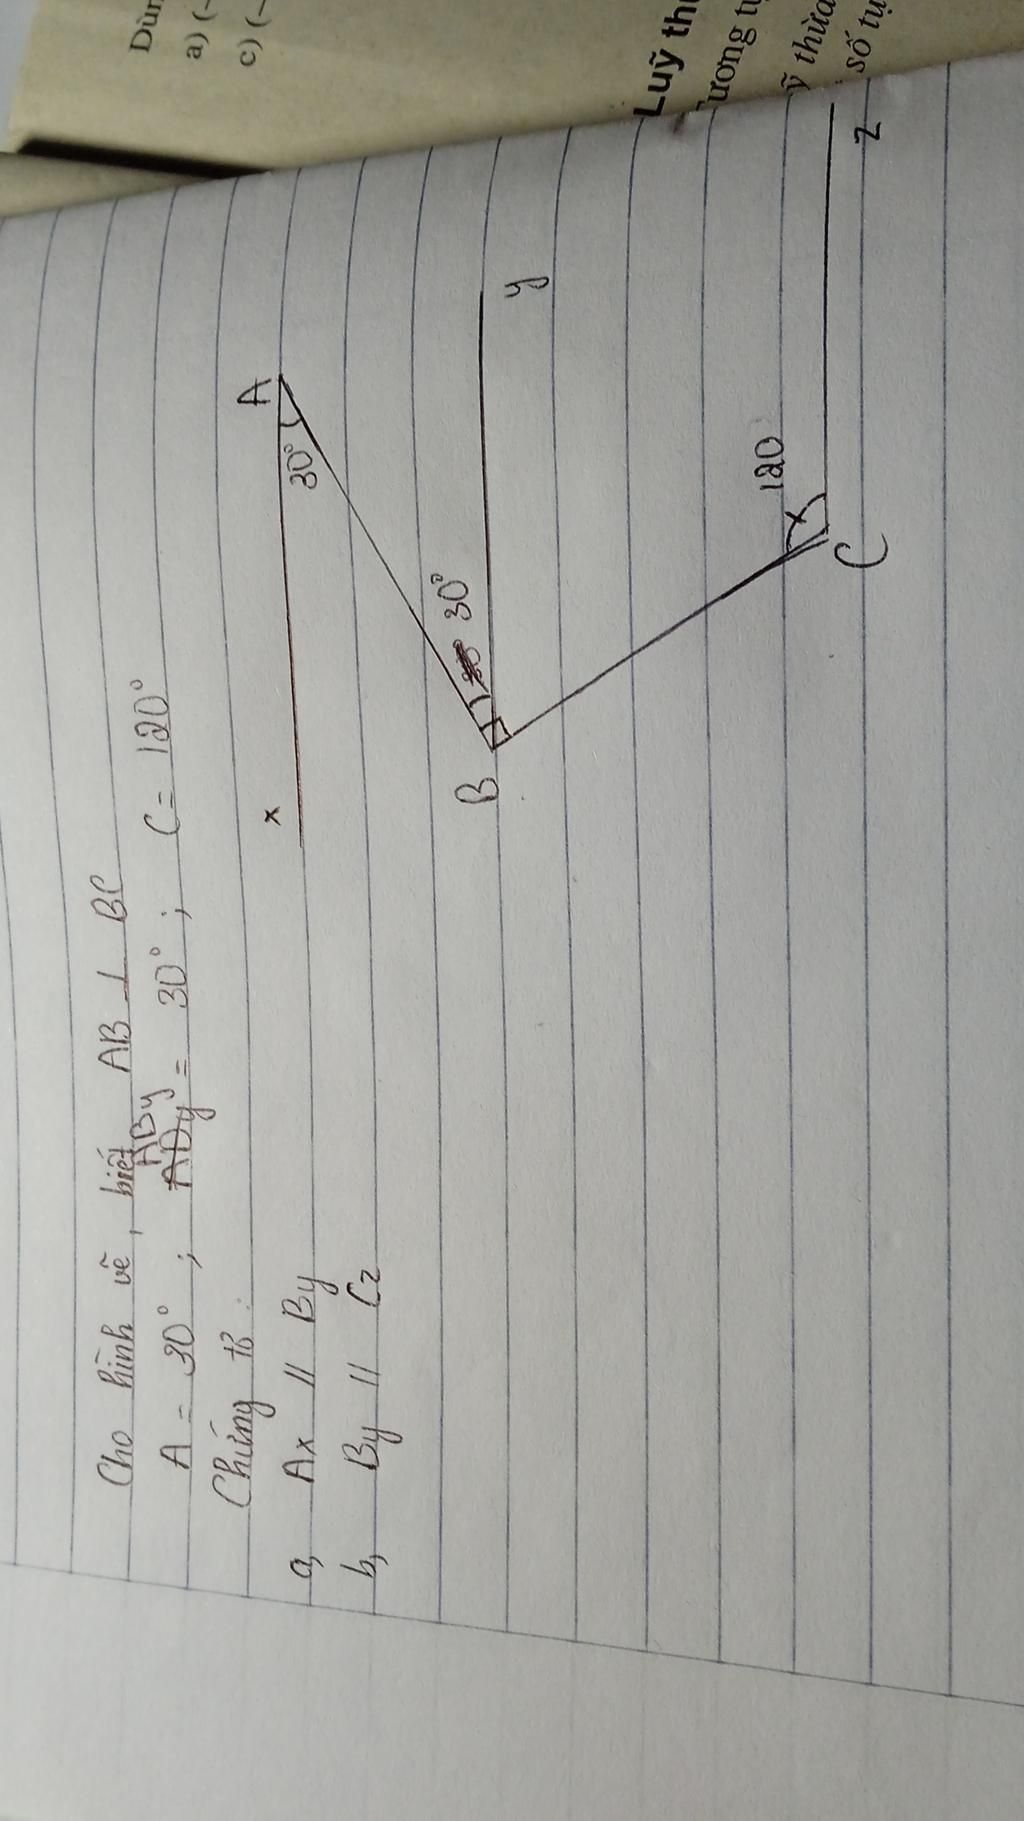 Cho hình vẽ, biết AB ⊥ BC
A = 30° ; ABy = 30° ; C = 120°
Chứng tỏ:
a, Ax // By
b, By // Cz
x
A
30°
B
30°
y
120
C
z
Dùn
a) (-
c) (-
Luỹ th
ương t
ỹ thừa
số tự